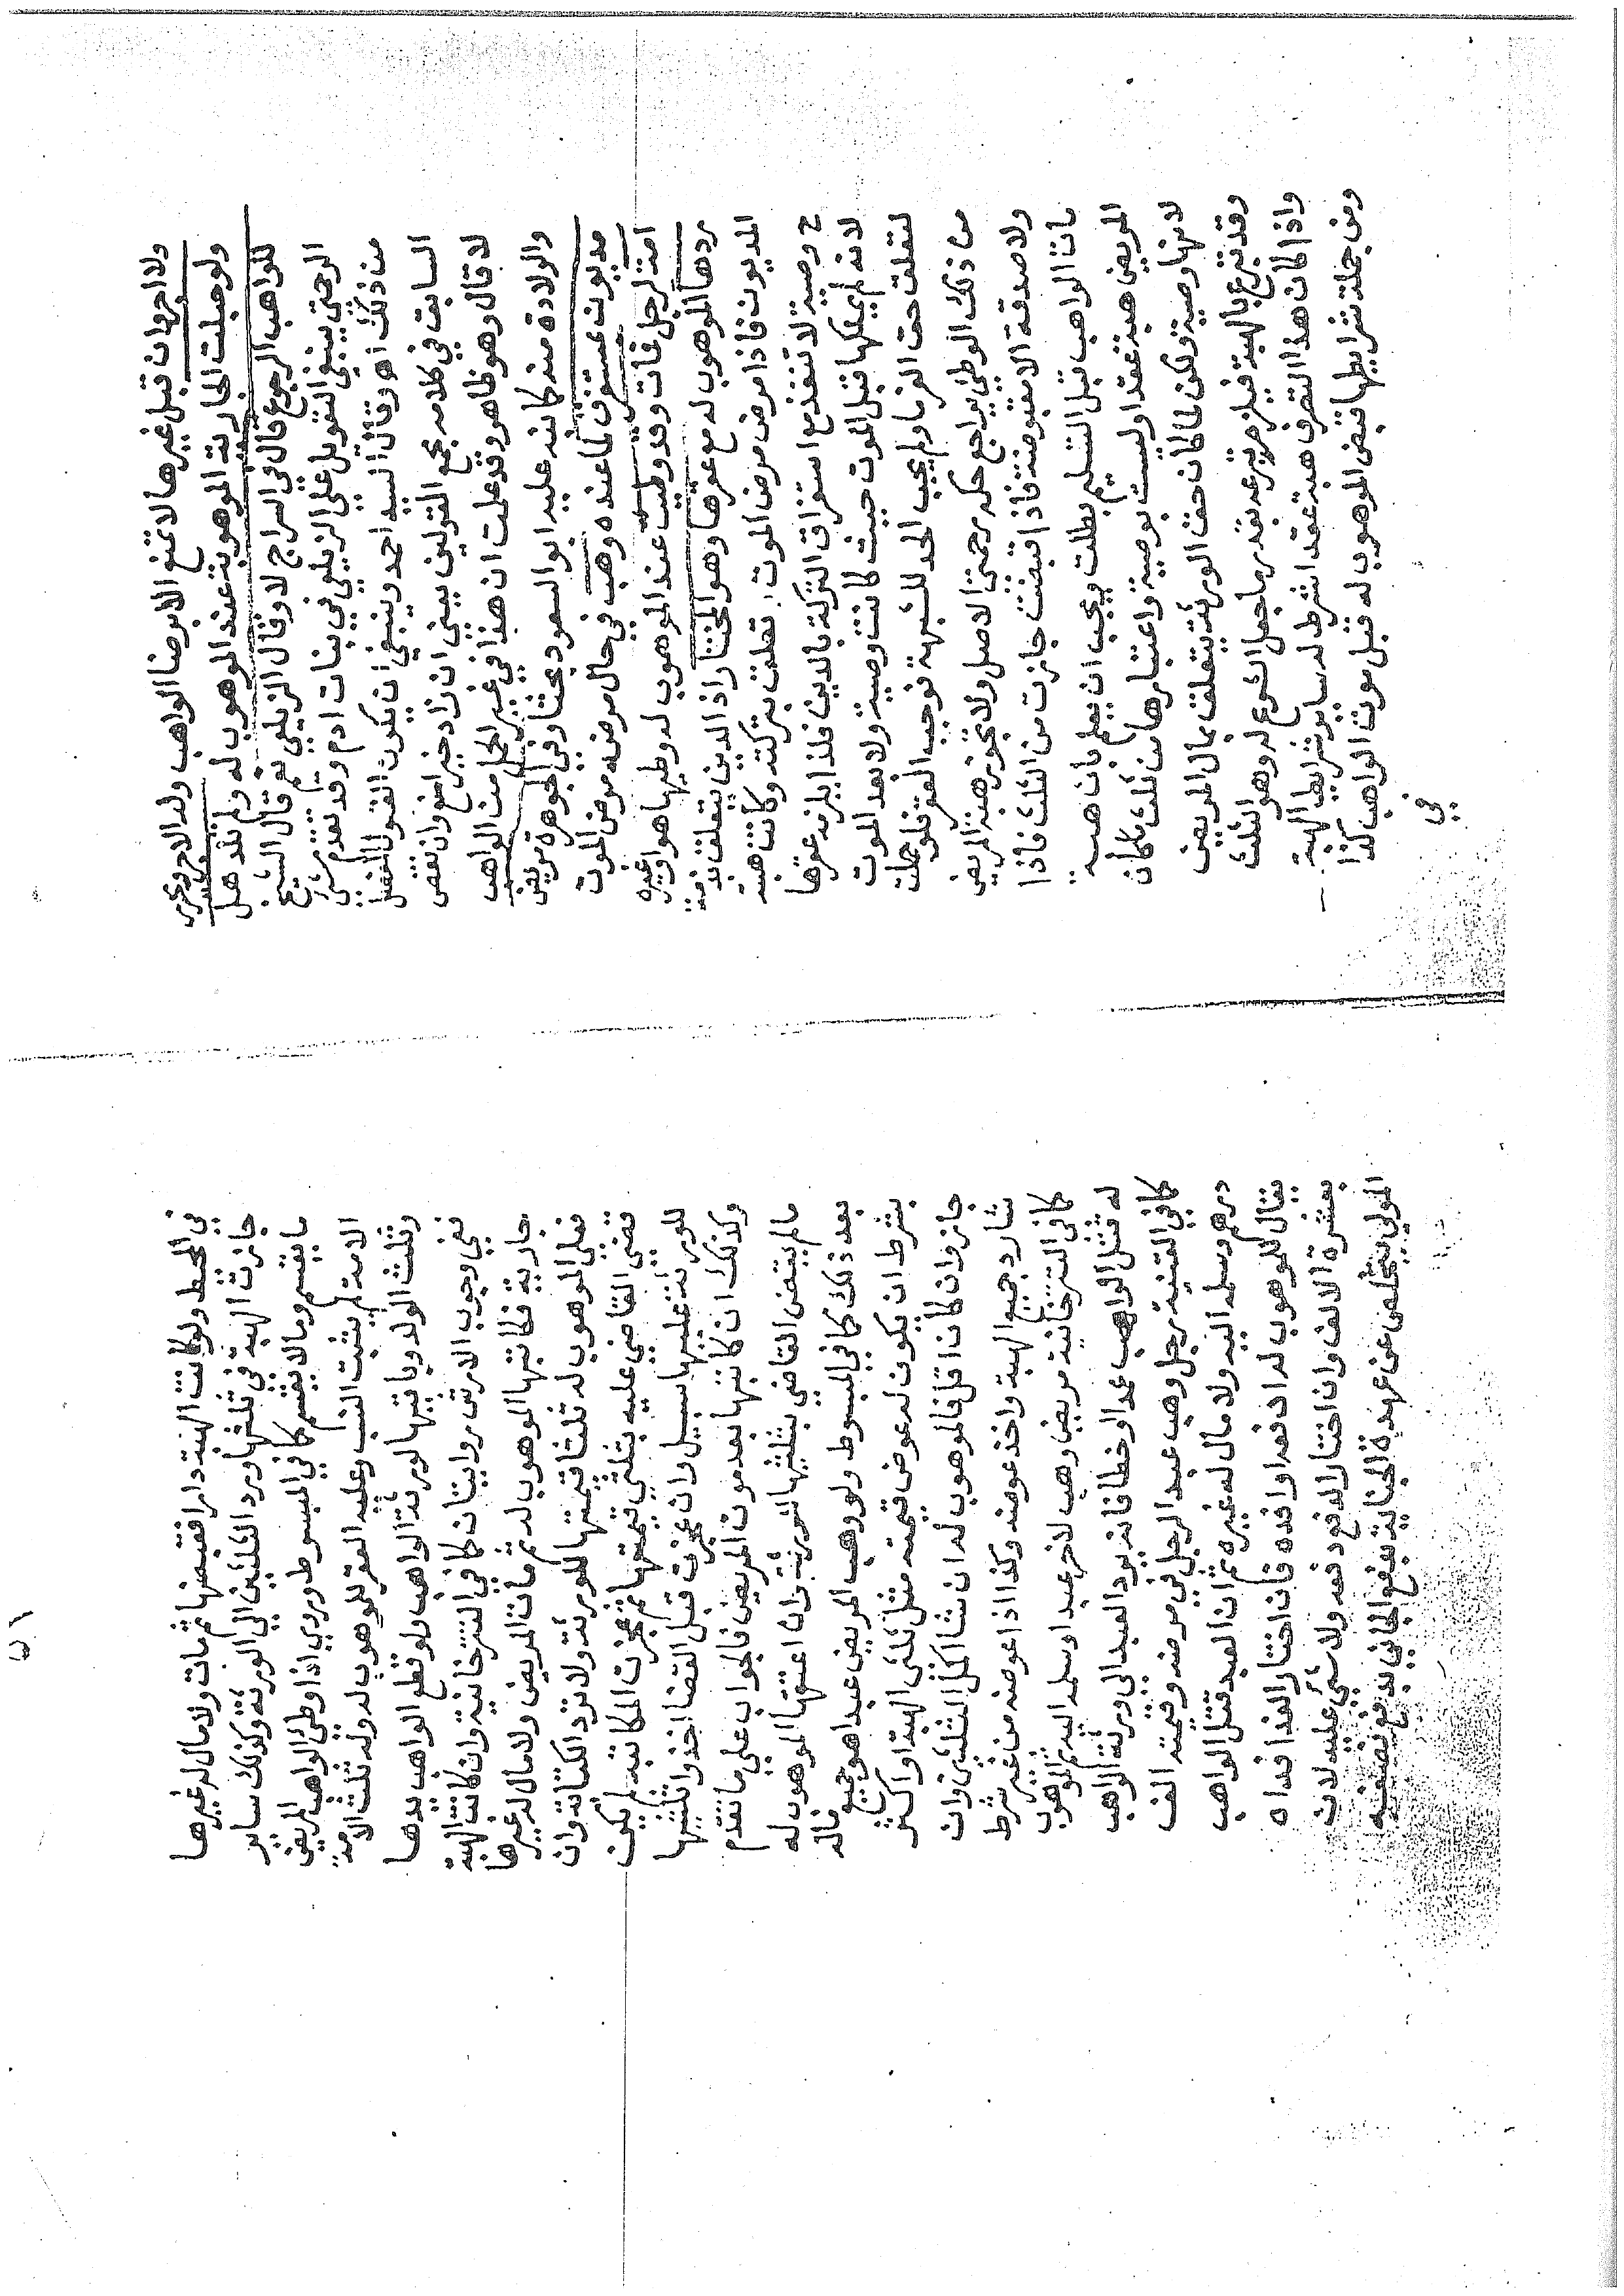 ولا احرم ان قبل غيرها لا تمنع الا برضا الواهب ولد الام وجرى
ولو حبلت الجارية الموهوبة عند الموهوب له ولم تلد هل
للواهب الرجوع قال في السراج لا وقال الزيلعي نعم قال الشيخ
الرحمتي ينبغي التعويل على الزيلعي في بنات ادم وقد تقدم شيء
من ذلك اهـ وقال السيد احمد وينبغي ان يكون القول المفصل
السابق في كلامه بجمع القولين يعني ان زاد خيرا منع وان نقص
لا قال وهو ظاهر وقد علمت ان هذا في غير الحمل من الواهب
والولادة منه كما نبه عليه ابو السعود بحثا وفي الجوهرة مريض
مديون بمستغرق لما عنده وهب في حال مرضه مرض الموت
امته لرجل فمات وقد وطئت عند الموهوب له وطيها هو او غيره
ردها الموهوب له مع عقرها وهو المختار اذ الدين يتعلق بذمة
المديون فاذا مرض مرض الموت تعلق بتركته وكانت هبته
ح وصية لا تنفذ مع استغراق التركة بالدين فلذا يلزمه عقرها
لانه لم يملكها قبل الموت حيث كانت وصية ولا بعد الموت
لتعلق حق الغرما ولم يجب الحد للشبهة فوجب العقر فلو حملت
من ذلك الوطئ يراجع حكمه رحمتي الاصل ولا تجوز هبة المريض
ولا صدقته الا مقبوضة فاذا قبضت جازت من الثلث فاذا
مات الواهب قبل التسليم بطلت ويجب ان يعلم بان هبة
المريض هبة عقدا وليست بوصية واعتبارها من ثلث ما كان
لانها وصية ولكن لما كان حق الورثة يتعلق بمال المريض
وقد تبرع بالهبة فيلزم تبرعه بقدر ما جعل الشرع له وهو الثلث
واذا كان هذا التصرف هبة عقدا شرط له ساير شرايط الهبة
ومن جملة شرايطها قبض الموهوب له قبل موت الواهب كذا
في
في المحيط ولو كانت الهبة دارا فقبضها ثم مات ولا مال له غيرها
جازت الهبة في ثلثها ويرد الثلثين الى الورثة وكذلك ساير
ما يقسم وما لا يقسم كما في المبسوط وروي اذا وطئ الواهب المريض
الامة لم يثبت النسب وعليه العقر للموهوب له وله ثلث الامة
وثلث الولد وباقيها لورثة الواهب ولو قطع الواهب يدها
ففي وجوب الارش روايتان كما في التترخانية وان كانت الهبة
جارية فكاتبها الموهوب له ثم مات المريض ولا مال له غيرها
فعلى الموهوب له ثلثا قيمتها للورثة ولا ترد الكتابة وان
قضى القاضي عليه بثلثي قيمتها ثم عجزت المكاتبة لم يكن
للورثة عليها سبيل وان عجزت قبل القضا اخذوا ثلثيها
وكذلك ان كاتبها بعد موت المريض فالجواب على ما تقدم
مالم يقض القاضي بثلثيها للورثة وان اعتقها الموهوب له
بعد ذلك كما في المبسوط ولو وهب المريض عبدا هو جميع ماله
بشرط ان يكون له عوض قيمته مثل ثلثي الهبة او اكثر
جاز وان كان اقل فالموهوب له ان شا اكمل الثلثين وان
شا رد جميع الهبة واخذ عوضه وكذا اذا عوضه من غير شرط
كما في التترخانية مريض وهب لاخر عبدا وسلمه اليه ثم الموهوب
له قتل الواهب عمدا او خطا فانه يرد العبد الى ورثة الواهب
كما في القنية رجل وهب عبده لرجل في مرضه وقيمته الف
درهم وسلمه اليه ولا مال له غيره ثم ان العبد قتل الواهب
يقال للموهوب له ادفعه او افده فان اختار الفدا فداه
بعشرة الالف وان اختار الدفع دفعه ولا شيء عليه لان
المولى يتخلص عن عهدة الجناية بدفع الجاني يدفع نصفه